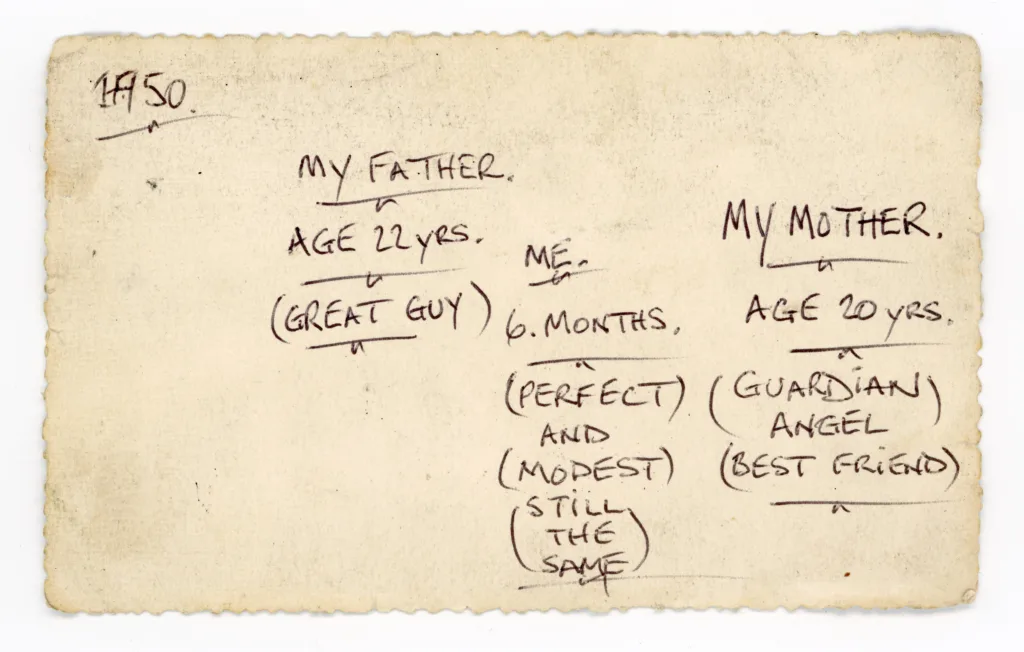 1950.
MY FATHER.
AGE 22 yRS.
(GREAT GUY)
ME.
6. MONTHS.
(PERFECT)
AND
(MODEST)
(STILL
THE
SAME)
MY MOTHER.
AGE 20 yRS.
(GUARDIAN)
ANGEL
(BEST FRIEND)